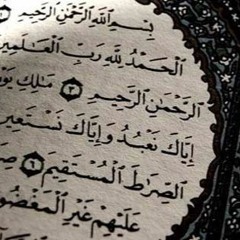 بِسْمِ اللَّهِ الرَّحْمَٰنِ الرَّحِيمِ
الْحَمْدُ لِلَّهِ رَبِّ الْعَالَمِينَ
الرَّحْمَٰنِ الرَّحِيمِ ٣ مَالِكِ يَوْ
إِيَّاكَ نَعْبُدُ وَإِيَّاكَ نَسْتَعِينُ
الصِّرَاطَ الْمُسْتَقِيمَ ٦ صِ
عَلَيْهِمْ غَيْرِ الْمَغْضُو